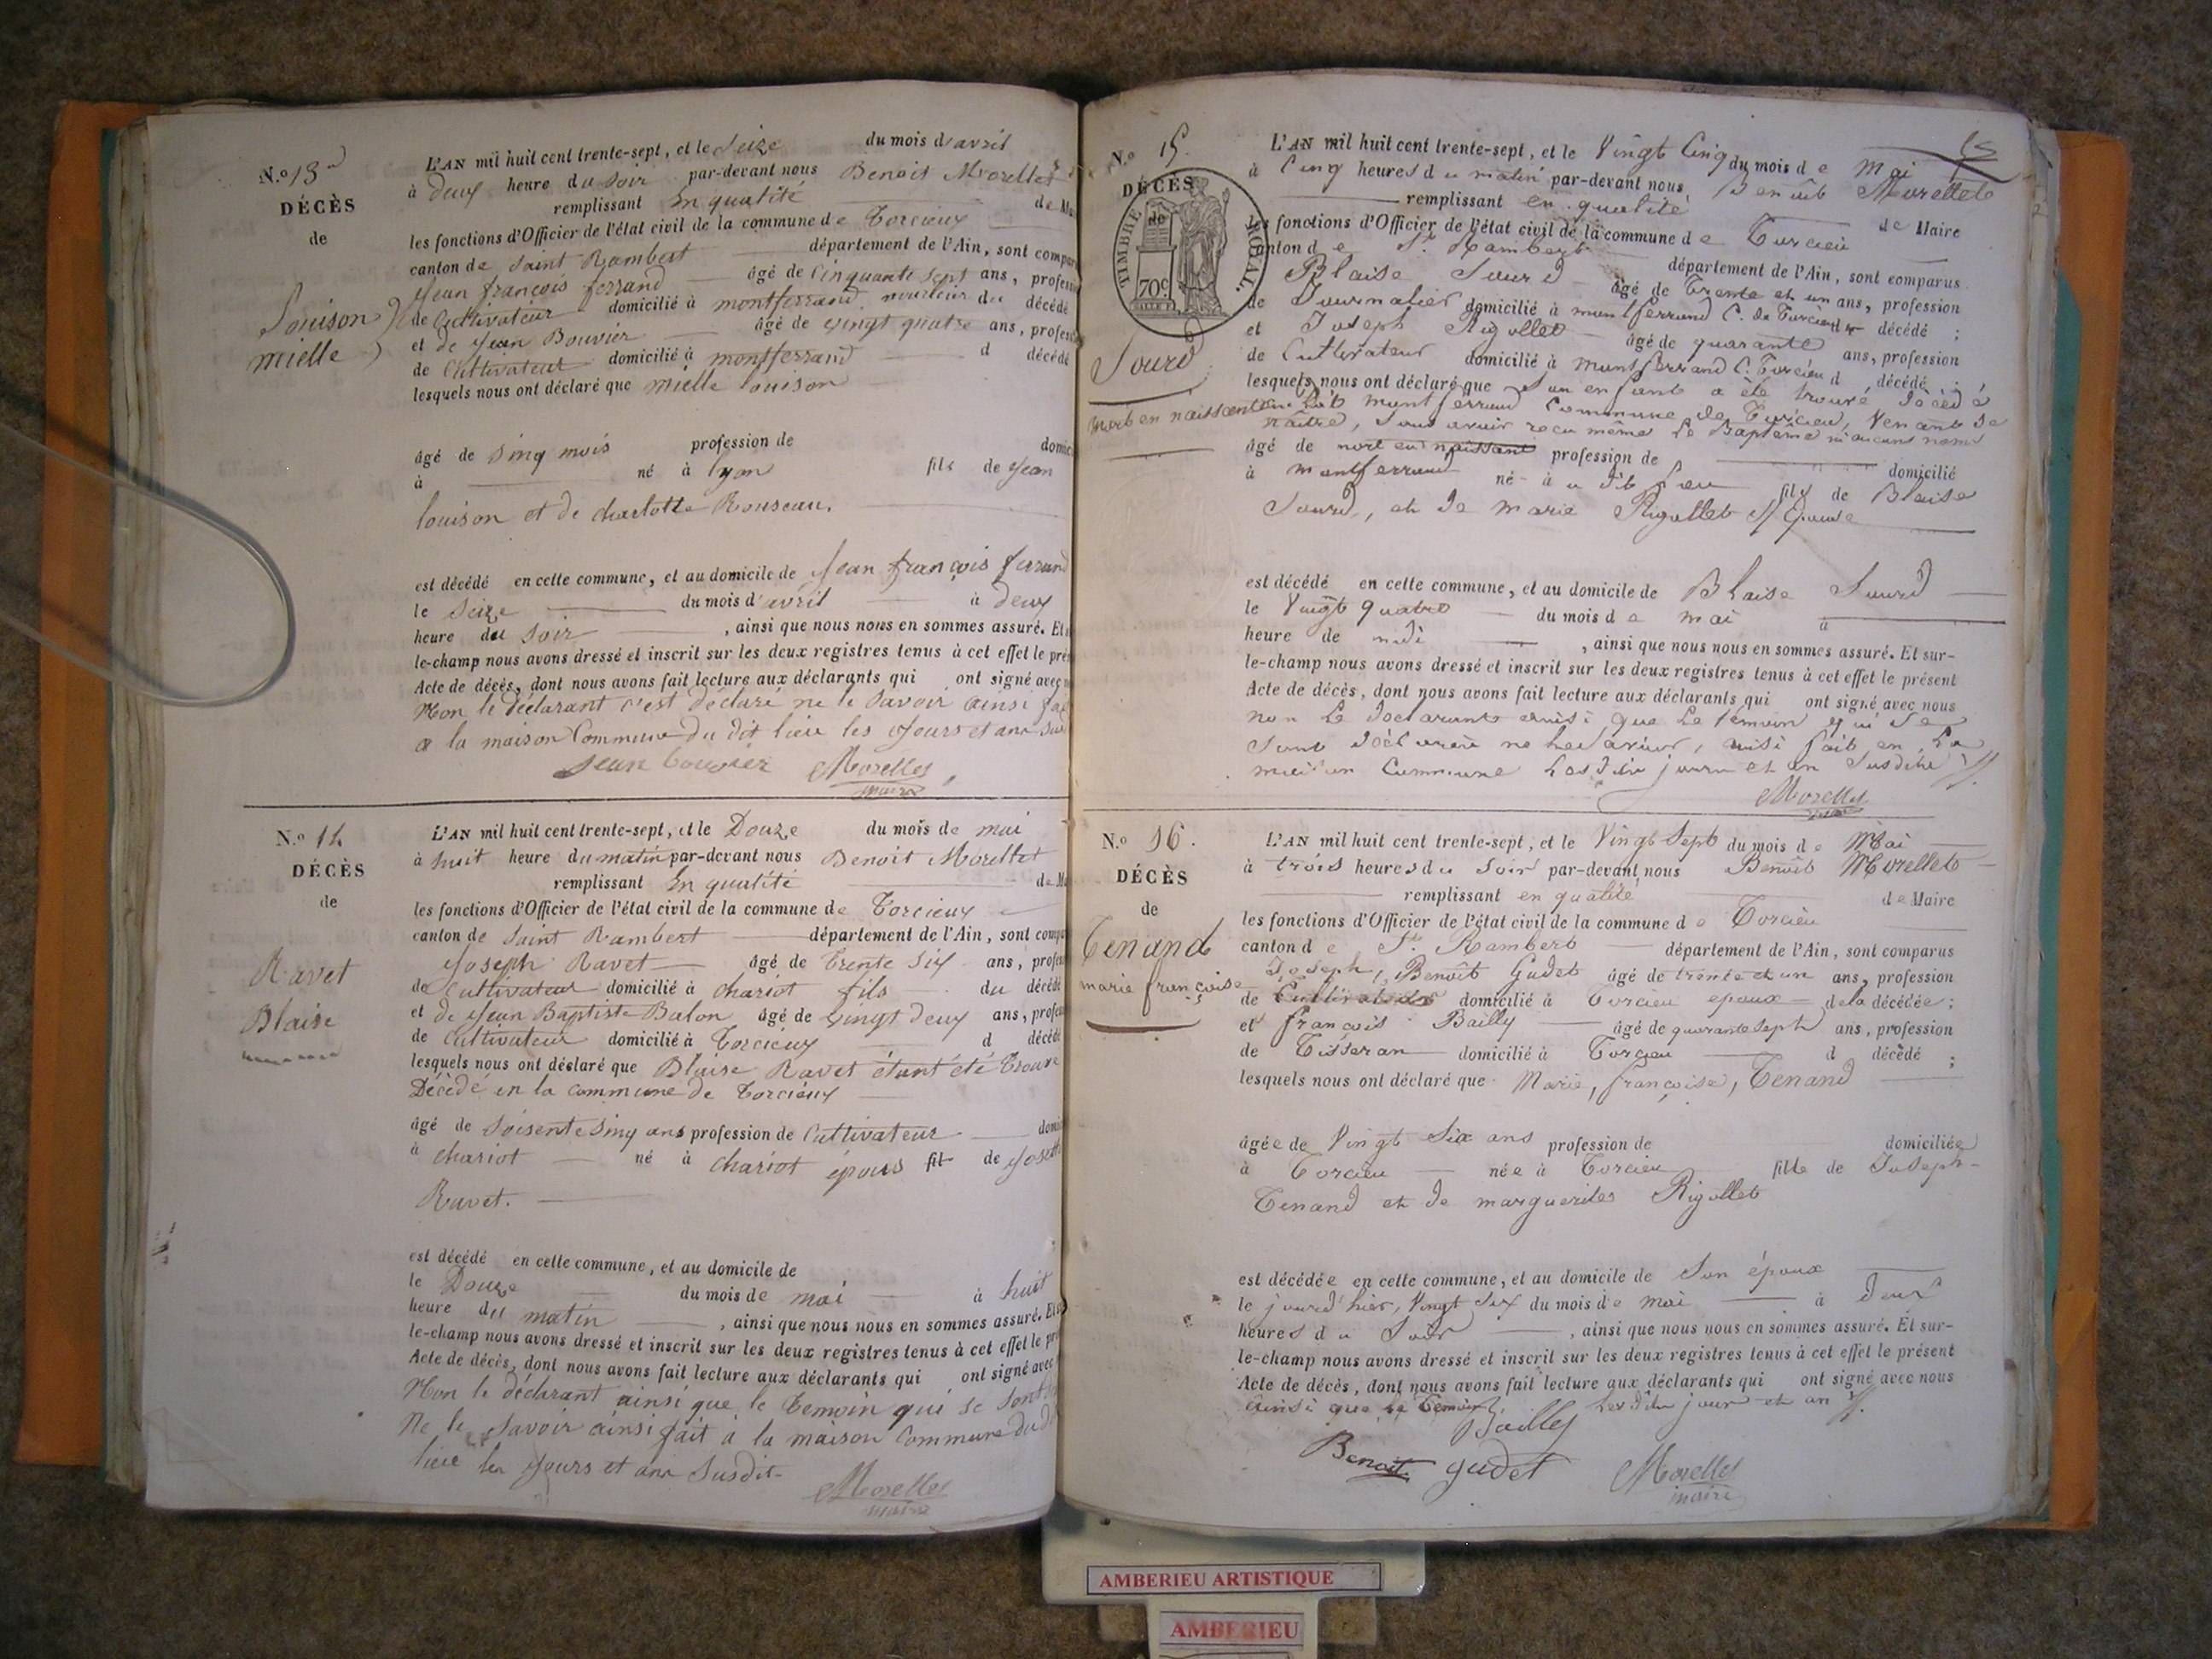 N.o 13
DÉCÈS
de
Louison
mielle
L'AN mil huit cent trente-sept, et le Seize du mois d'avril
à deux heure du soir par-devant nous Benoit Morellet
remplissant En qualité de
les fonctions d'Officier de l'état civil de la commune de Torcieux
canton de Saint Rambert département de l'Ain, sont
Jean françois ferrand âgé de Cinquante Sept ans,
de Cultivateur domicilié à montferrand nourricier du décédé
et de Jean Bouvier âgé de vingt quatre ans,
de Cultivateur domicilié à montferrand d décédé
lesquels nous ont déclaré que mielle louison
âgé de sinq mois profession de
à né à lyon fils de Jean
louison et de charlotte Rouseau.
est décédé en cette commune, et au domicile de Jean françois ferrand
le Seize du mois d'avril à deux
heure du soir , ainsi que nous nous en sommes assuré.
le-champ nous avons dressé et inscrit sur les deux registres tenus à cet effet le
Acte de décès, dont nous avons fait lecture aux déclarants qui ont signé avec
Non le déclarant c'est déclaré ne le savoir ainsi
a la maison Commune du dit lieu les Jours et an
Jean bouvier Morellet
maire
N.o 14
DÉCÈS
de
Ravet
Blaise
L'AN mil huit cent trente-sept, et le Douze du mois de mai
à huit heure du matin par-devant nous Benoit Morellet
remplissant En qualité de
les fonctions d'Officier de l'état civil de la commune de Torcieux
canton de Saint Rambert département de l'Ain, sont
Joseph Ravet âgé de trente Six ans,
de Cultivateur domicilié à chariot fils du décédé
et de Jean Baptiste Balon âgé de vingt deux ans,
de Cultivateur domicilié à Torcieux d décédé
lesquels nous ont déclaré que Blaise Ravet étant été trouvé
Décédé en la commune de Torcieux
âgé de Soisente Sinq ans profession de Cultivateur
à chariot né à chariot épous fil de
Ravet.
est décédé en cette commune, et au domicile de
le Douze du mois de mai à huit
heure du matin , ainsi que nous nous en sommes assuré.
le-champ nous avons dressé et inscrit sur les deux registres tenus à cet effet le
Acte de décès, dont nous avons fait lecture aux déclarants qui ont signé avec
Non le déclarant ainsi que le temoin qui se sont
Ne le Savoir ainsi fait a la maison Commune du
lieu les Jours et an Susdit
Morellet
maire
15
N.o 15.
DÉCÈS
de
TIMBRE ROYAL
70c
Sourd
mort en naissant
L'AN mil huit cent trente-sept, et le Vingt Cinq du mois de Mai
à Cinq heures du matin par-devant nous Benoît Morellet
remplissant en qualité de Maire
les fonctions d'Officier de l'état civil de la commune de Turcieu
canton de St. Rambert département de l'Ain, sont comparus
Blaise Sourd âgé de trente et un ans, profession
de Journalier domicilié à montferrand C. de Turcieu décédé ;
et Joseph Rigollet âgé de quarante ans, profession
de Cultivateur domicilié à montferrand C. Turcieu d décédé ;
lesquels nous ont déclaré que un enfant a été trouvé décédé
lieu montferrand Commune de Turcieu, Venant de
naître, sans avoir recu même le Baptême ni aucuns noms
âgé de mort en naissant profession de domicilié
à montferrand né à u dit lieu fils de Blaise
Sourd, et de marie Rigollet S/ Epouse
est décédé en cette commune, et au domicile de Blaise Sourd
le Vingt quatre du mois de mai à
heure de midi , ainsi que nous nous en sommes assuré. Et sur-
le-champ nous avons dressé et inscrit sur les deux registres tenus à cet effet le présent
Acte de décès, dont nous avons fait lecture aux déclarants qui ont signé avec nous
non le déclarant ainsi que le témoin qui se
sont ainsi fait en la
Commune jour et an Susdits
Morellet
N.o 16.
DÉCÈS
de
Tenand
marie françoise
L'AN mil huit cent trente-sept, et le Vingt Sept du mois de Mai
à trois heures du soir par-devant nous Benoît Morellet
remplissant en qualité de Maire
les fonctions d'Officier de l'état civil de la commune de Torcieu
canton de St. Rambert département de l'Ain, sont comparus
Joseph, Benoît Gudet âgé de trente et un ans, profession
de Cultivateur domicilié à Torcieu epoux de la décédée ;
et françois Bailly âgé de quarante sept ans, profession
de Tisseran domicilié à Torcieu d décédé ;
lesquels nous ont déclaré que Marie, françoise, Tenand
âgée de Vingt Six ans profession de domiciliée
à Torcieu née à Torcieu fille de Joseph
Tenand et de marguerites Rigollet
est décédée en cette commune, et au domicile de Son époux
le jourd'hier, Vingt Six du mois de mai à deux
heures du Soir , ainsi que nous nous en sommes assuré. Et sur-
le-champ nous avons dressé et inscrit sur les deux registres tenus à cet effet le présent
Acte de décès, dont nous avons fait lecture aux déclarants qui ont signé avec nous
ainsi que le temoin lesdits jour et an
Bailly
Benoit gudet Morellet
maire
AMBERIEU ARTISTIQUE
AMBERIEU